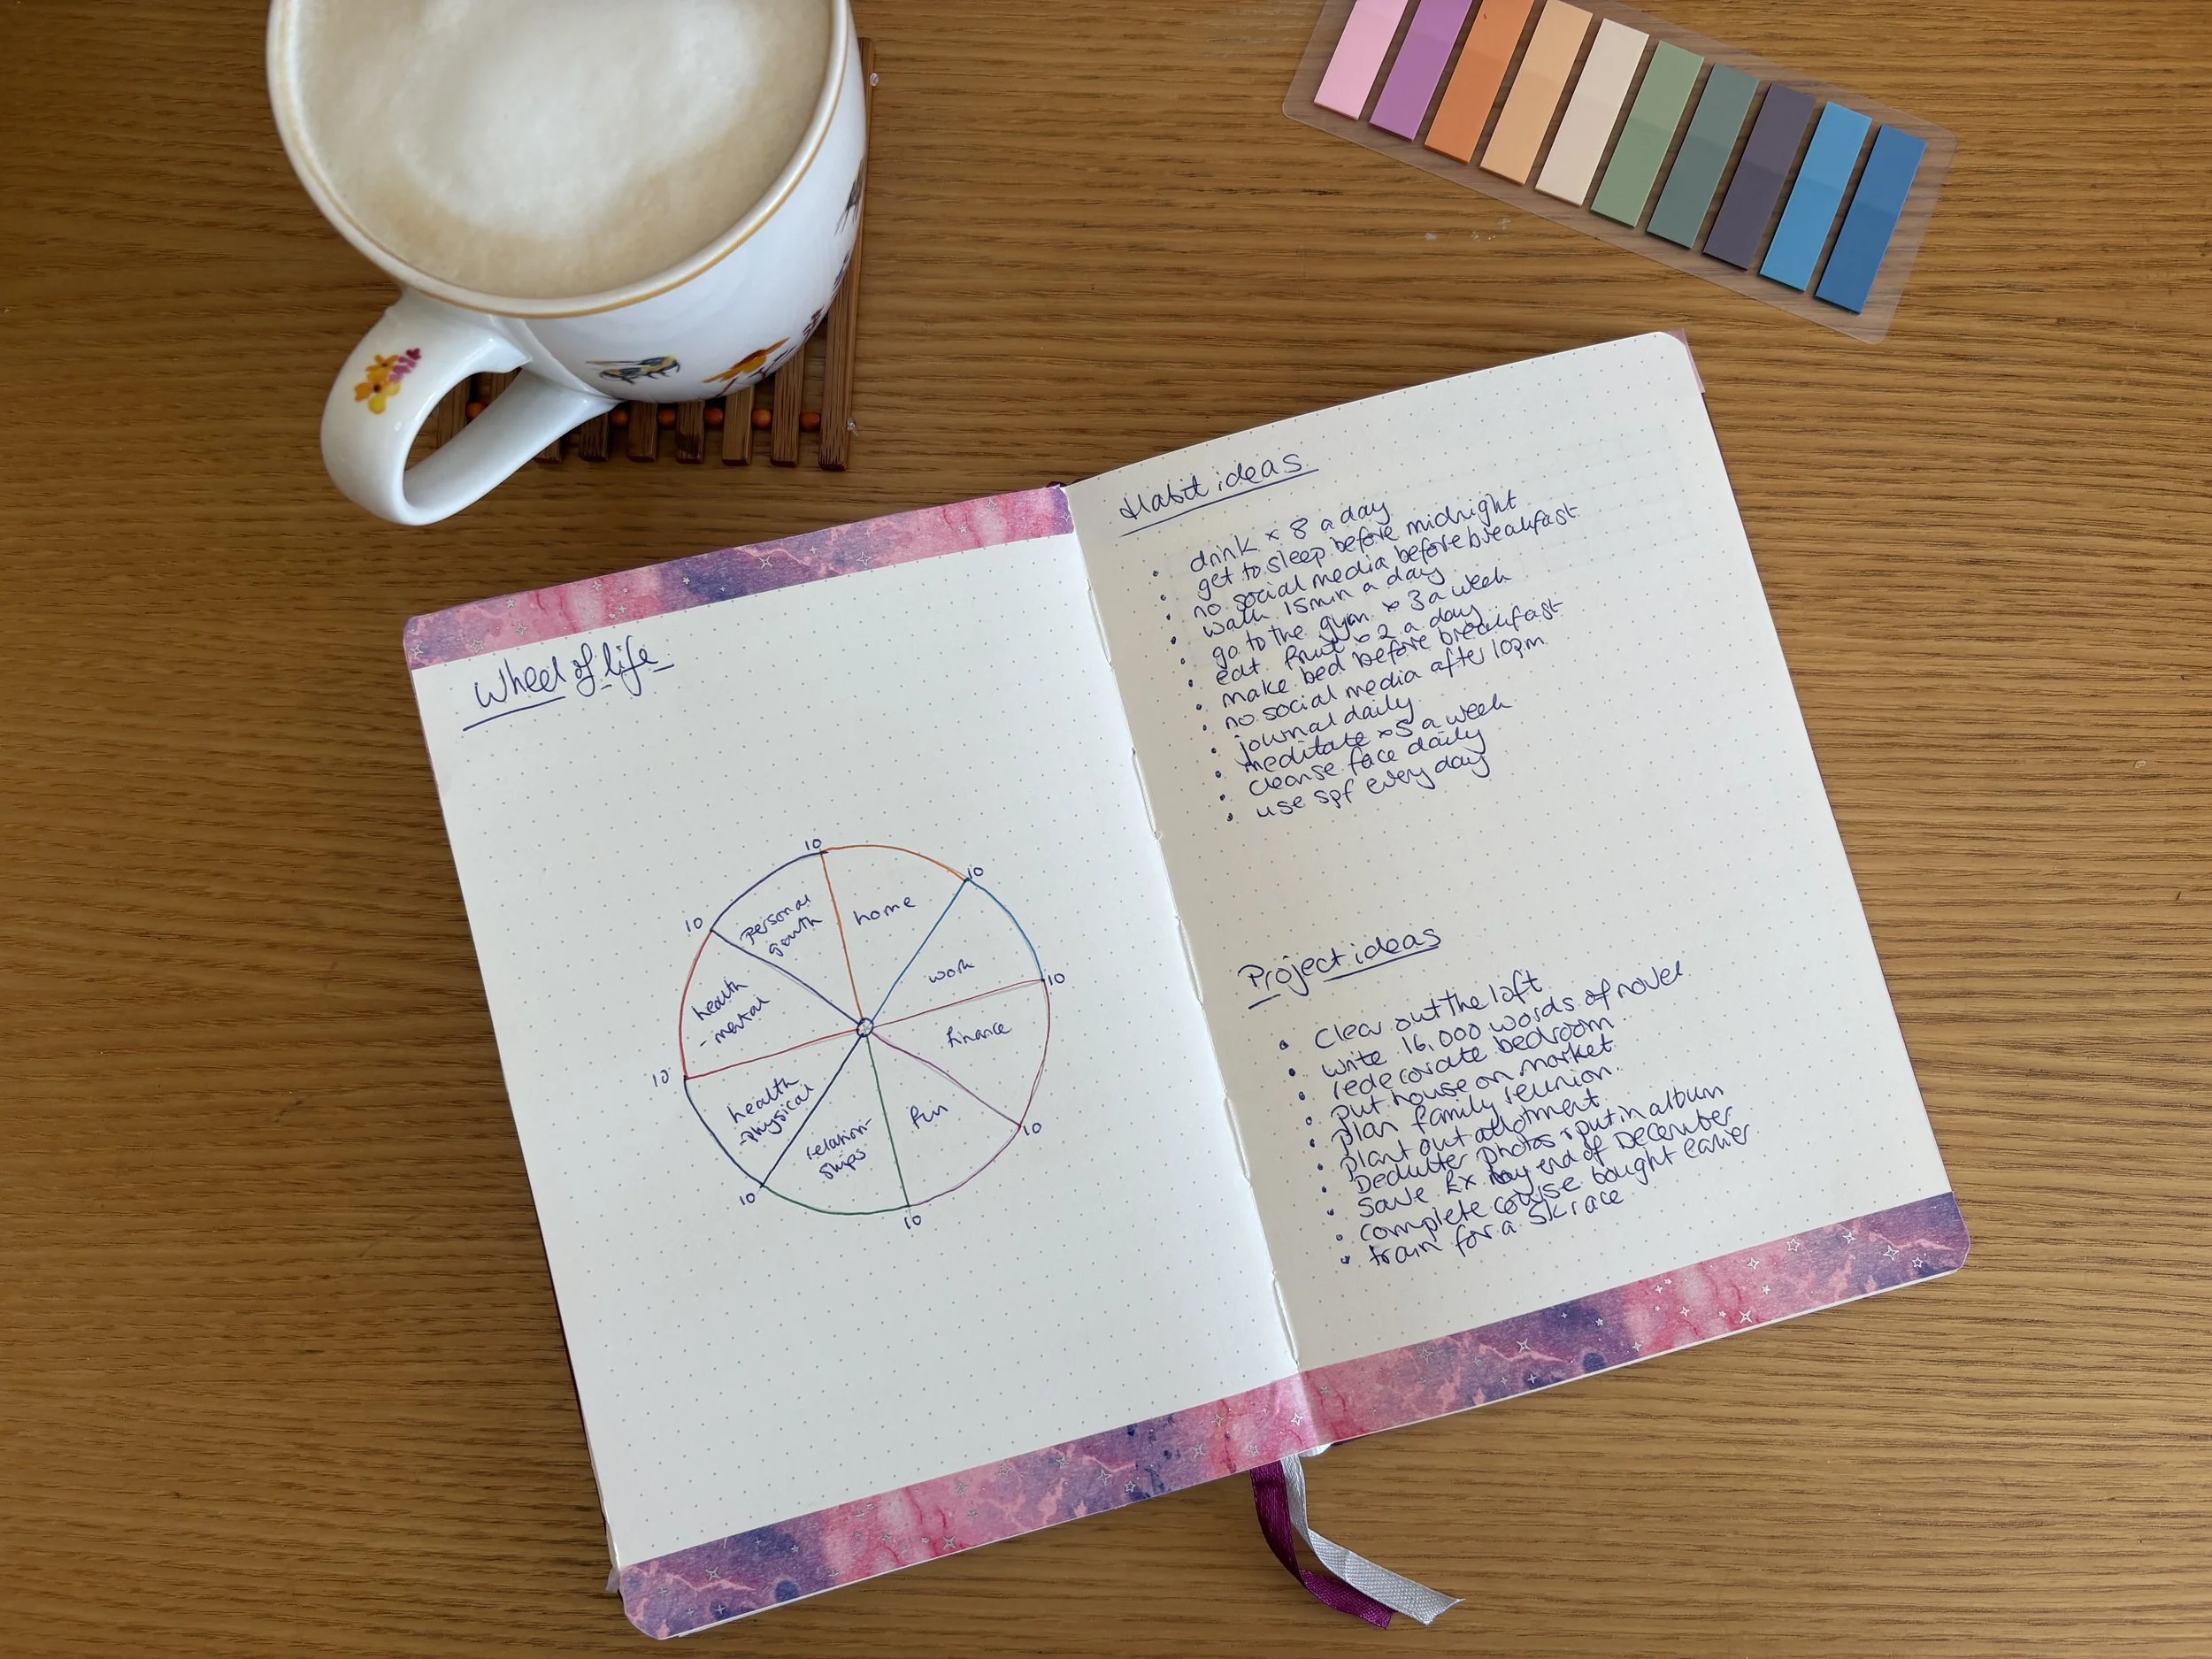 Wheel of life
10
10
10
10
10
10
10
10
personal
growth
home
work
finance
fun
relation-
ships
health
-physical
health
- mental
Habit ideas
• drink x 8 a day
• get to sleep before midnight
• no social media before breakfast
• walk 15min a day
• go to the gym x 3 a week
• eat fruit x 2 a day
• make bed before breakfast
• no social media after 10pm
• journal daily
• meditate x5 a week
• cleanse face daily
• use spf every day
Project ideas
• Clear out the loft
• write 16,000 words of novel
• redecorate bedroom
• put house on market
• plan family reunion
• plant out allotment
• Declutter photos + put in album
• Save £x by end of December
• complete course bought earlier
• train for a 5k race